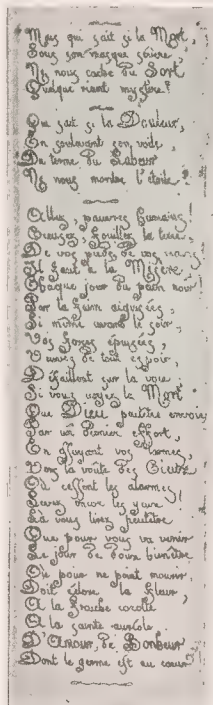 Mais qui sait si la Mort,
Sous son masque sévère
Ne nous cache du Sort
Quelque riant mystère!
Qui sait si la Douleur,
En soulevant son voile,
Du terme du Labeur
Ne nous montre l'étoile.
Allez, pauvres humains,
Creusez, fouillez la terre;
De vos pieds de vos mains
Il faut à la Misère
Chaque jour du pain noir
Par la faim aiguisées,
Si même avant le soir,
Vos forces épuisées,
Veuves de tout espoir,
Défaillent sur la voie
Si vous voyez la Mort
Que Dieu peut-être envoie,
Par un dernier effort,
En essuyant vos larmes,
Vers la voûte des Cieux
Où cessent les alarmes,
Levez encor les yeux
Là vous lirez peut-être
Que pour vous va venir
Le jour de
Où pour ne point mourir,
Doit éclore la fleur,
A la fraîche corolle
A la sainte auréole
D'Amour, de Bonheur
Dont le germe est au cœur